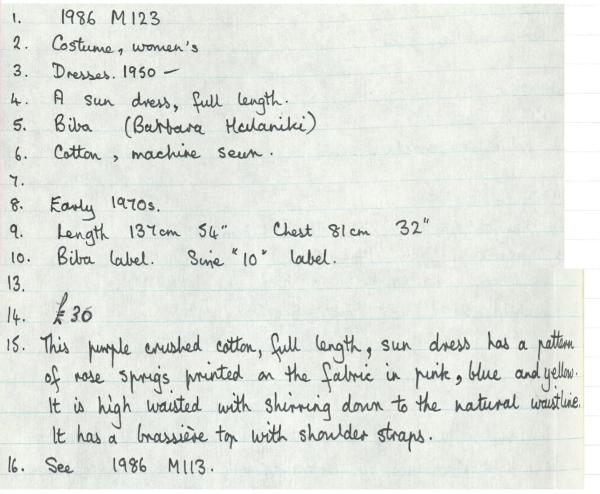 1. 1986 M123
2. Costume, women's
3. Dresses. 1950 –
4. A sun dress, full length.
5. Biba (Barbara Hulaniki)
6. Cotton, machine sewn.
7.
8. Early 1970s.
9. Length 137cm 54" Chest 81cm 32"
10. Biba label. Size "10" label.
13.
14. £30
15. This purple crushed cotton, full length, sun dress has a pattern
of rose sprigs printed on the fabric in pink, blue and yellow.
It is high waisted with shirring down to the natural waistline.
It has a brassière top with shoulder straps.
16. See 1986 M113.